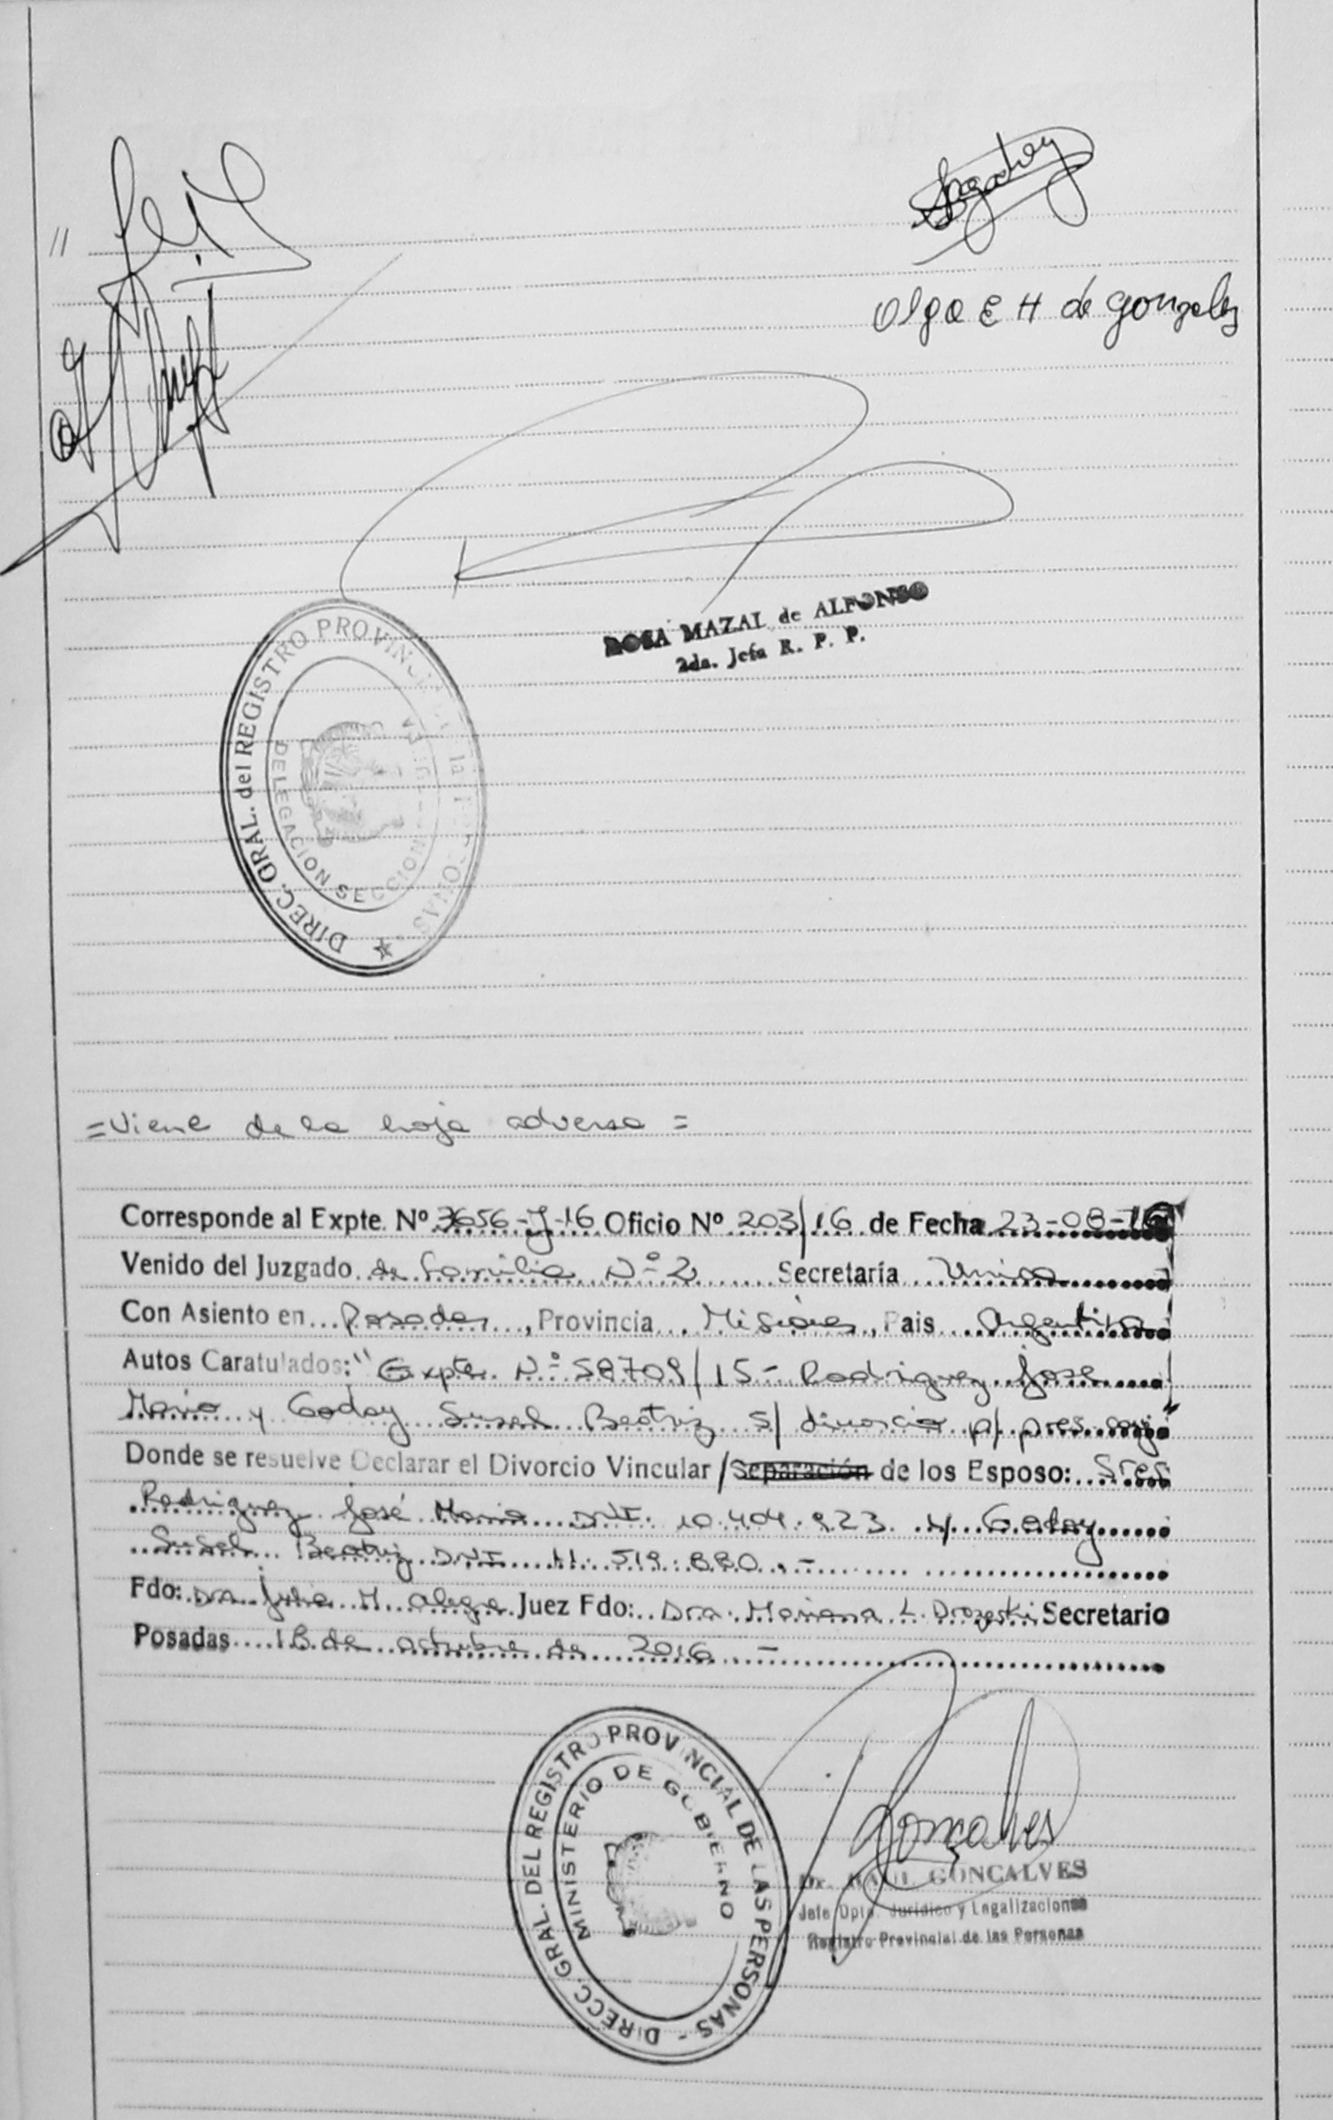 //
Olga E H de Gonzalez
ROSA MAZAL de ALFONSO
2da. Jefa R. P. P.
DIREC. GRAL. del REGISTRO PROVINCIAL de las PERSONAS
DELEGACION SECCION
=Viene de la hoja adversa=
Corresponde al Expte. Nº 3656-J-16 Oficio Nº 203/16 de Fecha 23-08-16
Venido del Juzgado de Familia Nº 2 Secretaría Unica
Con Asiento en Posadas, Provincia Misiones, Pais Argentina
Autos Caratulados: "Expte. Nº 58709/15 - Rodriguez Jose
Mario y Godoy Susel Beatriz s/ divorcio p/ pres. conj
Donde se resuelve Declarar el Divorcio Vincular / Separación de los Esposo: Sres
Rodriguez José Mario DNI. 10.404.823 y Godoy
Susel Beatriz DNI 11.519.880.-
Fdo: Dra Julia M. Alegre Juez Fdo: Dra. Mariana L. Drozeski Secretario
Posadas 18 de octubre de 2016 -
DIRECC. GRAL. DEL REGISTRO PROVINCIAL DE LAS PERSONAS -
MINISTERIO DE GOBIERNO
Goncalves
Dr. RAUL GONCALVES
Jefe Dpto. Jurídico y Legalizaciones
Registro Provincial de las Personas